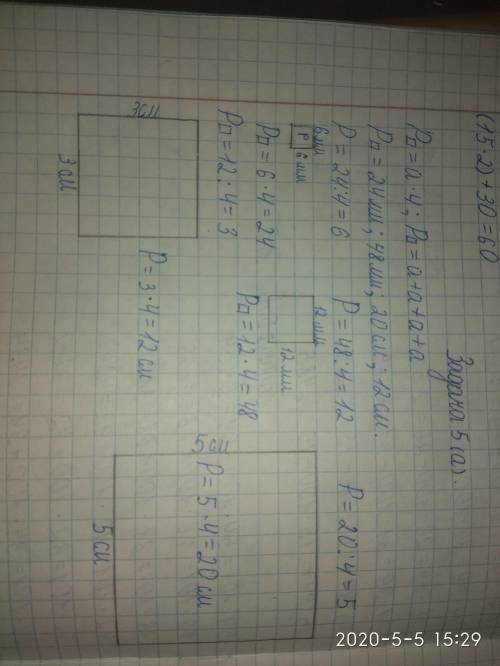 (15·2)+30=60
Задача 5(а).
P□=a·4; P□=a+a+a+a
P□=24мм; 48мм; 20см; 12см.
P=24:4=6
P=48:4=12
P=20:4=5
6мм
P 6мм
12мм
12мм
P□=6·4=24
P□=12·4=48
P□=12:4=3
5см
P=5·4=20см
5см
3см
3см
P=3·4=12см
2020-5-5 15:29